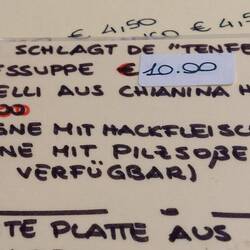 € 4,50
€ 4,50
SCHLAGT DE "TENFE
SSUPPE € 10.00
ELLI AUS CHIANINA H
00
GNE MIT HACKFLEISC
NE MIT PILZSOßE
VERFÜGBAR)
TE PLATTE AUS